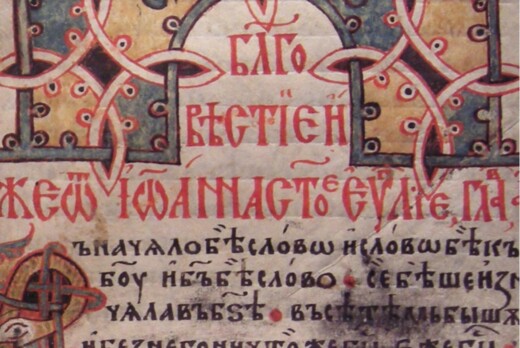 БЛ҃ГО
ВѢСТЇЕ Н
ЖЕѾ ІѠАННА СТ҃ОЕ ЕѴ҃ЛІЕ, ГЛА҃В
ъ начѧло бѣ словѡ и словѡ бѣ къ
б҃оу и б҃ъ бѣ слово · се бѣше изн
чѧла въ б҃ѕѣ · въсѣ тѣмь бышѧ